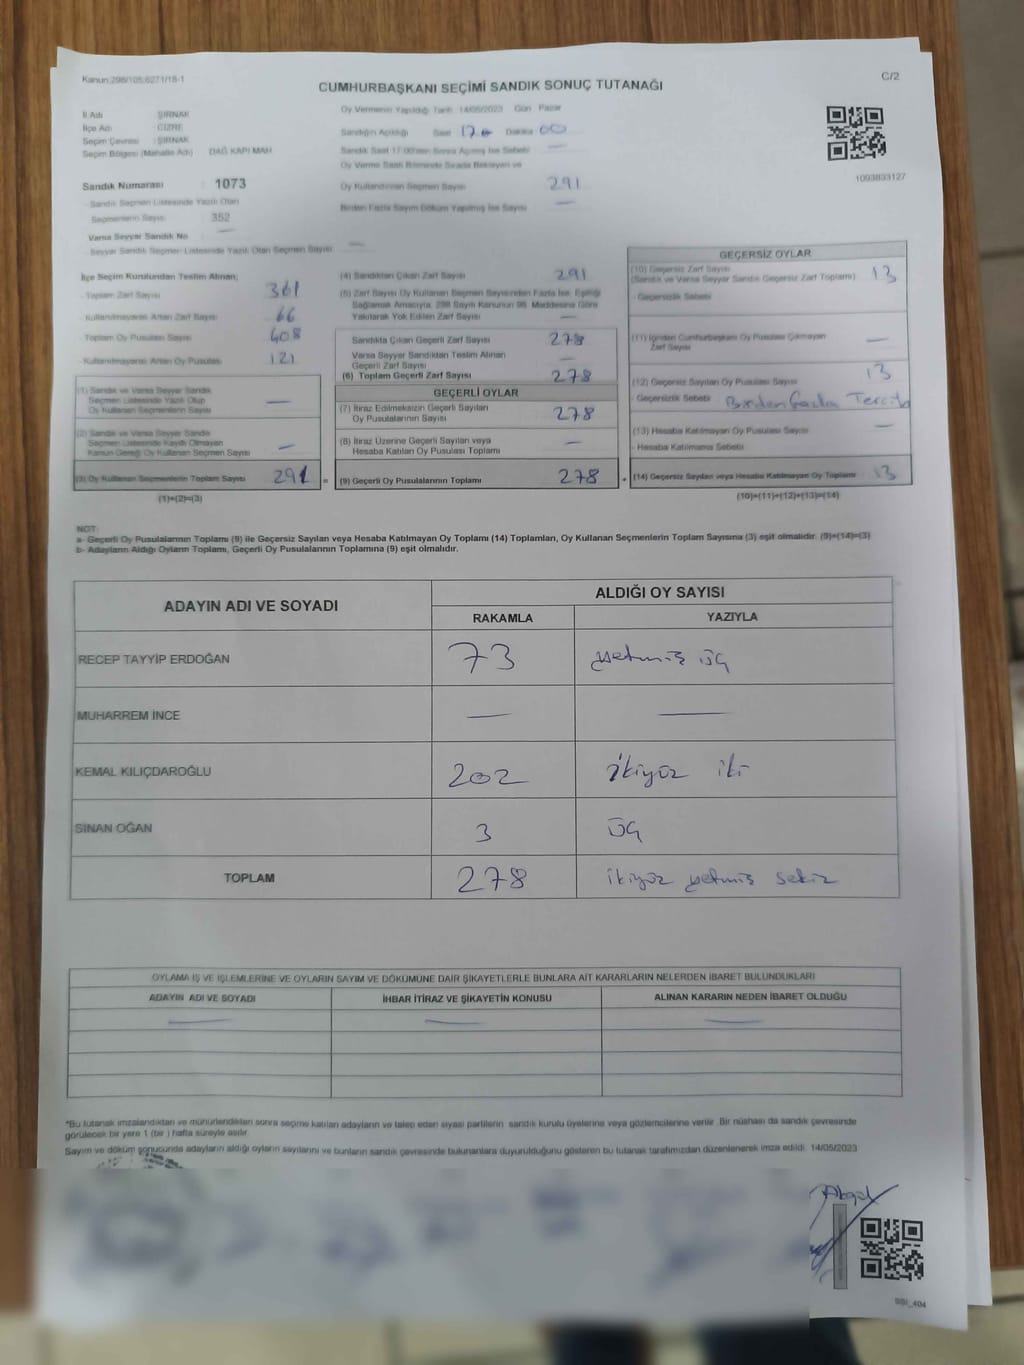 Kanun:298/105;6271/18-1
C/2
CUMHURBAŞKANI SEÇİMİ SANDIK SONUÇ TUTANAĞI
İl Adı : ŞIRNAK
İlçe Adı : CİZRE
Seçim Çevresi : ŞIRNAK
Seçim Bölgesi (Mahalle Adı) DAĞ KAPI MAH
Oy Vermenin Yapıldığı Tarih 14/05/2023 Gün Pazar
Sandığın Açıldığı Saat 17.00 Dakika 00
Sandık Saat 17:00'den Sonra Açılmış İse Sebebi —
Oy Verme Saati Bitiminde Sırada Bekleyen ve
Oy Kullandırılan Seçmen Sayısı 291
Birden Fazla Sayım Döküm Yapılmış İse Sayısı —
1093833127
Sandık Numarası : 1073
- Sandık Seçmen Listesinde Yazılı Olan
Seçmenlerin Sayısı : 352
Varsa Seyyar Sandık No —
- Seyyar Sandık Seçmen Listesinde Yazılı Olan Seçmen Sayısı —
İlçe Seçim Kurulundan Teslim Alınan;
- Toplam Zarf Sayısı 361
- Kullanılmayarak Artan Zarf Sayısı 66
- Toplam Oy Pusulası Sayısı 408
- Kullanılmayarak Artan Oy Pusulası 121
(1) Sandık ve Varsa Seyyar Sandık
Seçmen Listesinde Yazılı Olup
Oy Kullanan Seçmenlerin Sayısı —
(2) Sandık ve Varsa Seyyar Sandık
Seçmen Listesinde Kayıtlı Olmayan
Kanun Gereği Oy Kullanan Seçmen Sayısı —
(3) Oy Kullanan Seçmenlerin Toplam Sayısı 291 =
(1)+(2)=(3)
(4) Sandıktan Çıkan Zarf Sayısı 291
(5) Zarf Sayısı Oy Kullanan Seçmen Sayısından Fazla İse, Eşitliği
Sağlamak Amacıyla, 298 Sayılı Kanunun 98. Maddesine Göre
Yakılarak Yok Edilen Zarf Sayısı —
Sandıkta Çıkan Geçerli Zarf Sayısı 278
Varsa Seyyar Sandıktan Teslim Alınan
Geçerli Zarf Sayısı —
(6) Toplam Geçerli Zarf Sayısı 278
GEÇERLİ OYLAR
(7) İtiraz Edilmeksizin Geçerli Sayılan
Oy Pusulalarının Sayısı 278
(8) İtiraz Üzerine Geçerli Sayılan veya
Hesaba Katılan Oy Pusulası Toplamı —
(9) Geçerli Oy Pusulalarının Toplamı 278 +
GEÇERSİZ OYLAR
(10) Geçersiz Zarf Sayısı
(Sandık ve Varsa Seyyar Sandık Geçersiz Zarf Toplamı) 13
- Geçersizlik Sebebi
(11) İçinden Cumhurbaşkanı Oy Pusulası Çıkmayan
Zarf Sayısı —
(12) Geçersiz Sayılan Oy Pusulası Sayısı 13
- Geçersizlik Sebebi Birden fazla Tercih
(13) Hesaba Katılmayan Oy Pusulası Sayısı —
- Hesaba Katılmama Sebebi
(14) Geçersiz Sayılan veya Hesaba Katılmayan Oy Toplamı 13
(10)+(11)+(12)+(13)=(14)
NOT:
a- Geçerli Oy Pusulalarının Toplamı (9) ile Geçersiz Sayılan veya Hesaba Katılmayan Oy Toplamı (14) Toplamları, Oy Kullanan Seçmenlerin Toplam Sayısına (3) eşit olmalıdır. (9)+(14)=(3)
b- Adayların Aldığı Oyların Toplamı, Geçerli Oy Pusulalarının Toplamına (9) eşit olmalıdır.
ADAYIN ADI VE SOYADI
ALDIĞI OY SAYISI
RAKAMLA YAZIYLA
RECEP TAYYİP ERDOĞAN 73 yetmiş üç
MUHARREM İNCE — —
KEMAL KILIÇDAROĞLU 202 ikiyüz iki
SİNAN OĞAN 3 üç
TOPLAM 278 ikiyüz yetmiş sekiz
OYLAMA İŞ VE İŞLEMLERİNE VE OYLARIN SAYIM VE DÖKÜMÜNE DAİR ŞİKAYETLERLE BUNLARA AİT KARARLARIN NELERDEN İBARET BULUNDUKLARI
ADAYIN ADI VE SOYADI İHBAR İTİRAZ VE ŞİKAYETİN KONUSU ALINAN KARARIN NEDEN İBARET OLDUĞU
— — —
*Bu tutanak imzalandıktan ve mühürlendikten sonra seçime katılan adayların ve talep eden siyasi partilerin sandık kurulu üyelerine veya gözlemcilerine verilir. Bir nüshası da sandık çevresinde
görülecek bir yere 1 (bir) hafta süreyle asılır.
Sayım ve döküm sonucunda adayların aldığı oyların sayılarını ve bunların sandık çevresinde bulunanlara duyurulduğunu gösteren bu tutanak tarafımızdan düzenlenerek imza edildi. 14/05/2023
SSI_404